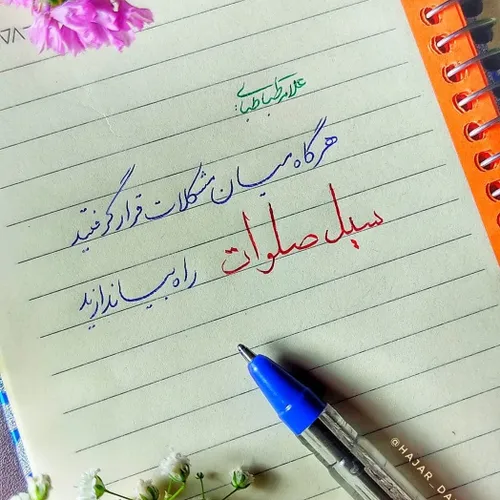 علامه طباطبایی:
هرگاه میان مشکلات قرار گرفتید
سیل صلوات
راه بیاندازید
@HAJAR_DA